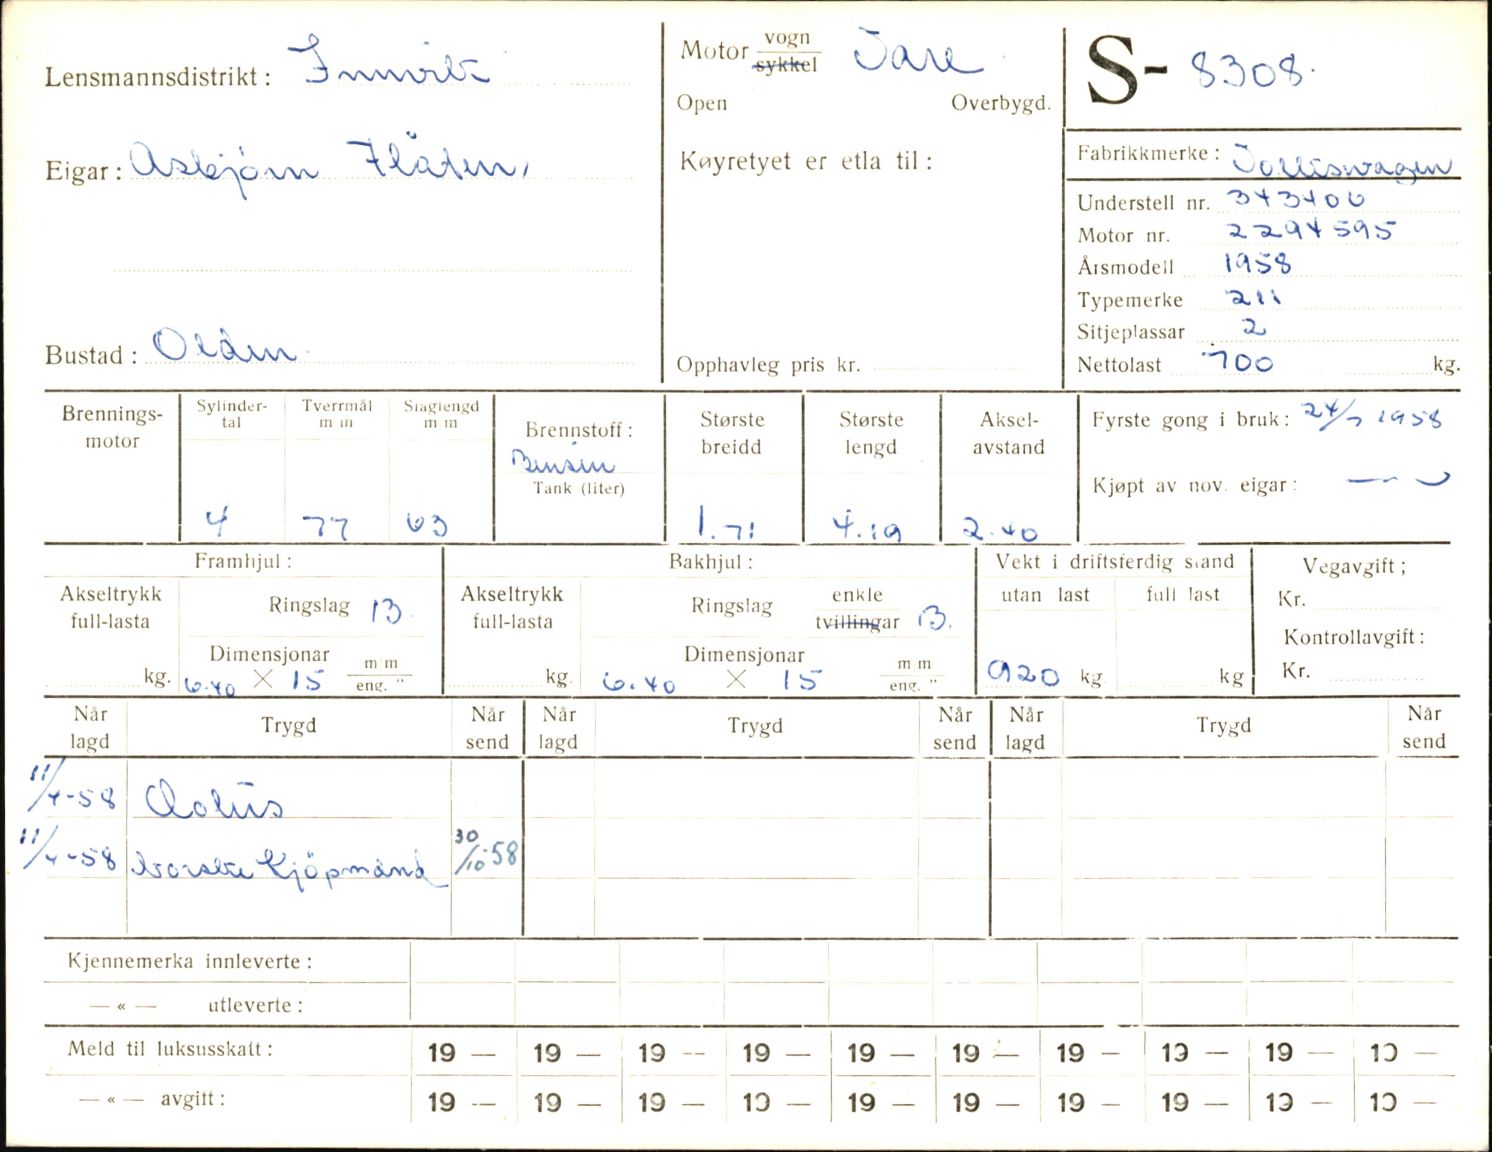 Lensmannsdistrikt: Innvik
Eigar: Asbjørn Flåten,
Bustad: Olden
Motor vogn Vare
sykkel
Open Overbygd.
Køyretyet er etla til:
Opphavleg pris kr.
S- 8308.
Fabrikkmerke: Volkswagen
Understell nr. 343400
Motor nr. 2294595
Årsmodell 1958
Typemerke 211
Sitjeplassar 2
Nettolast 700 kg.
Brennings-
motor
Sylinder-
tal
4
Tverrmål
m m
77
Slaglengd
m m
63
Brennstoff:
Bensin
Tank (liter)
Største
breidd
1.71
Største
lengd
4.19
Aksel-
avstand
2.40
Fyrste gong i bruk: 24/7 1958
Kjøpt av nov. eigar: — " —
Framhjul:
Akseltrykk
full-lasta
kg.
Ringslag 13.
Dimensjonar m m
6.40 × 15 eng. "
Bakhjul:
Akseltrykk
full-lasta
kg.
Ringslag enkle
tvillingar 13.
Dimensjonar m m
6.40 × 15 eng. "
Vekt i driftsferdig stand
utan last full last
920 kg kg
Vegavgift;
Kr.
Kontrollavgift:
Kr.
Når
lagd Trygd Når
send Når
lagd Trygd Når
send Når
lagd Trygd Når
send
11/4-58
11/4-58 Norske Kjøpmænd 30/10-58
Kjennemerka innleverte:
— « — utleverte:
Meld til luksusskatt: 19 — 19 — 19 — 19 — 19 — 19 — 19 — 19 — 19 — 19 —
— « — avgift: 19 — 19 — 19 — 19 — 19 — 19 — 19 — 19 — 19 — 19 —